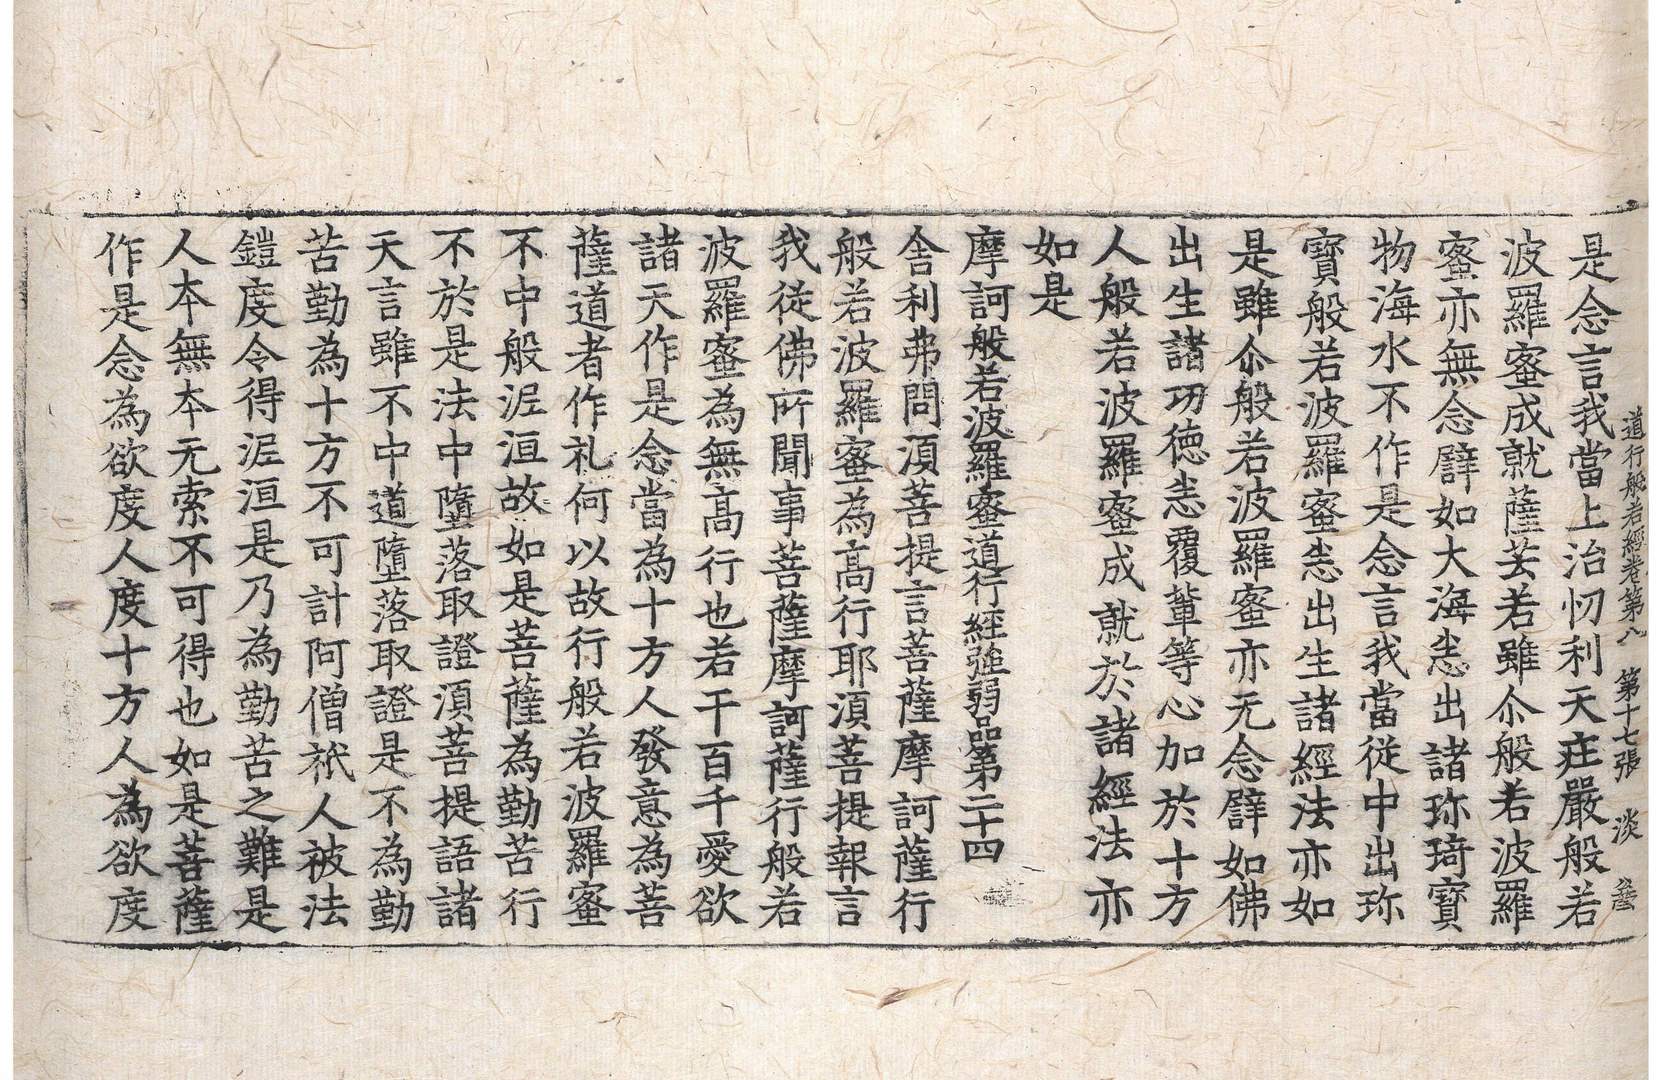 道行般若經卷第八　第十七張　淡
是念言我當上治忉利天㽵嚴般若
波羅蜜成就薩芸若雖尒般若波羅
蜜亦無念譬如大海悉出諸珎琦寶
物海水不作是念言我當從中出珎
寶般若波羅蜜悉出生諸經法亦如
是雖尒般若波羅蜜亦无念譬如佛
出生諸功德悉覆輩等心加於十方
人般若波羅蜜成就於諸經法亦
如是
摩訶般若波羅蜜道行經強弱品第二十四
舎利弗問湏菩提言菩薩摩訶薩行
般若波羅蜜為高行耶湏菩提報言
我從佛所聞事菩薩摩訶薩行般若
波羅蜜為無高行也若干百千愛欲
諸天作是念當為十方人發意為菩
薩道者作礼何以故行般若波羅蜜
不中般泥洹故如是菩薩為勤苦行
不於是法中墮落取證湏菩提語諸
天言雖不中道墮落取證是不為勤
苦勤為十方不可計阿僧祇人被法
鎧度令得泥洹是乃為勤苦之難是
人本無本无索不可得也如是菩薩
作是念為欲度人度十方人為欲度